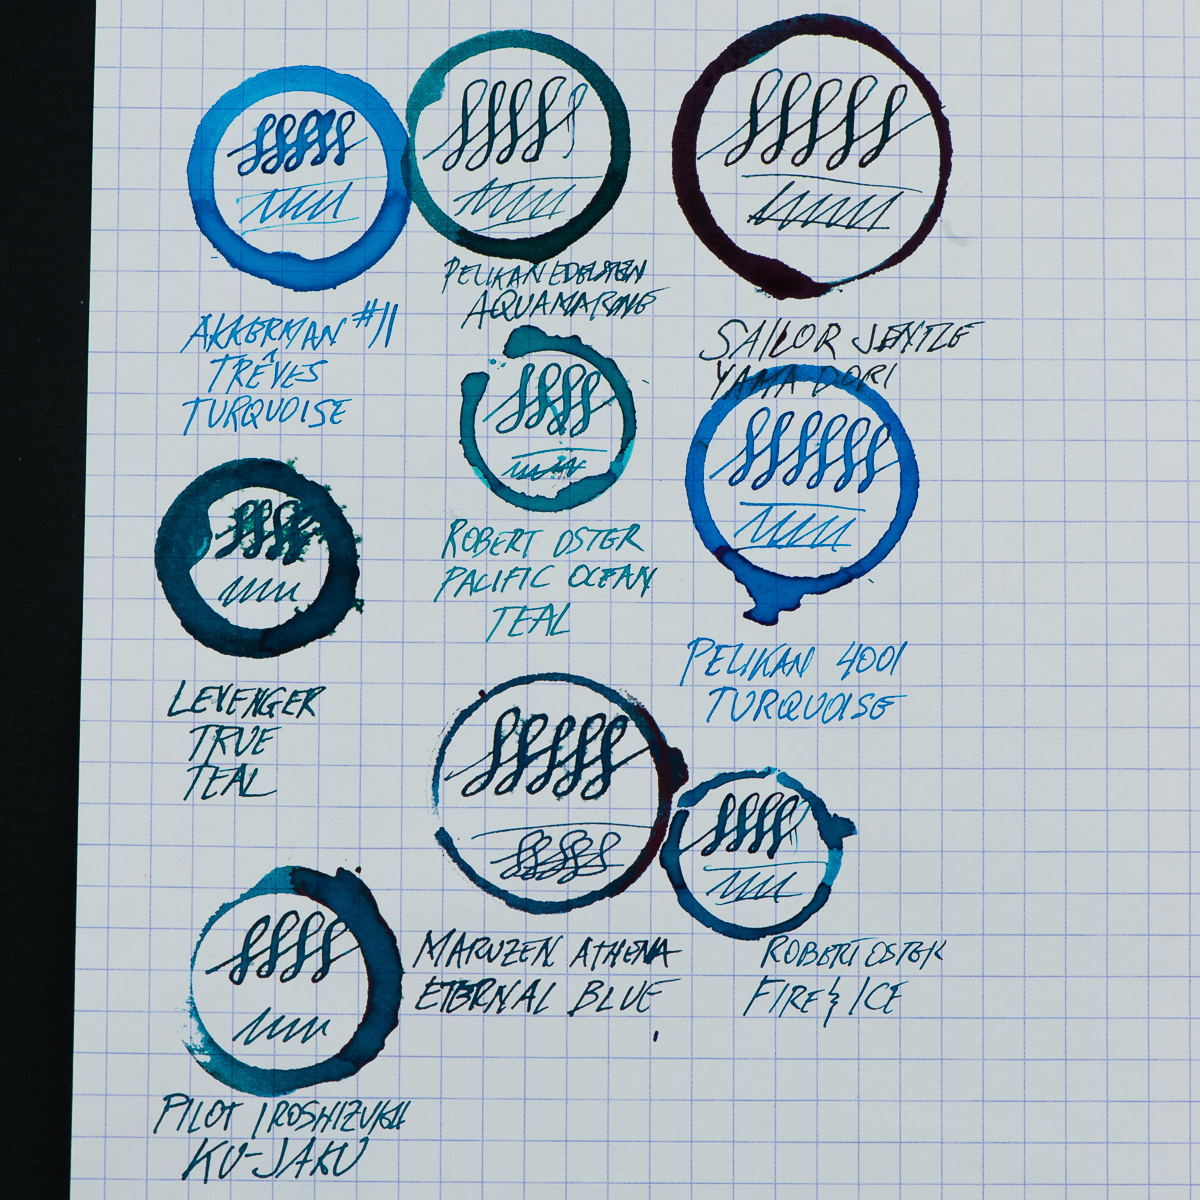 AKKERMAN #11
TRÊVES
TURQUOISE
PELIKAN EDELSTEIN
AQUAMARINE
SAILOR JENTLE
YAMA DORI
ROBERT OSTER
PACIFIC OCEAN
TEAL
PELIKAN 4001
TURQUOISE
LEVENGER
TRUE
TEAL
MARUZEN ATHENA
ETERNAL BLUE
ROBERT OSTER
FIRE & ICE
PILOT IROSHIZUKU
KU-JAKU